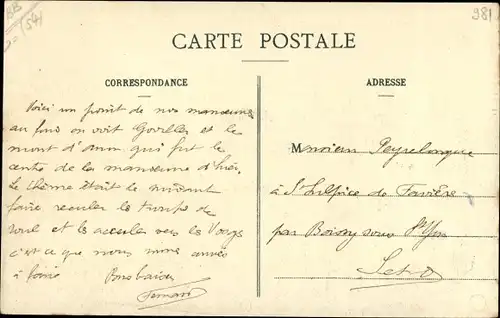 BB
(54)
981
CARTE POSTALE
CORRESPONDANCE
Voici un point de nos manoeuvres
au fond on voit Goviller et le
mont d'Anon qui fut le
centre de la manoeuvre d'hier.
Le thème était le suivant
faire reculer les troupes de
Toul et les acculer vers les Vosges
c'est ce que nous avons
à Bons baisers
Fernand
ADRESSE
Monsieur Peyrelongue
à St Sulpice de Favières
par Boissy sous St Yon
S et O